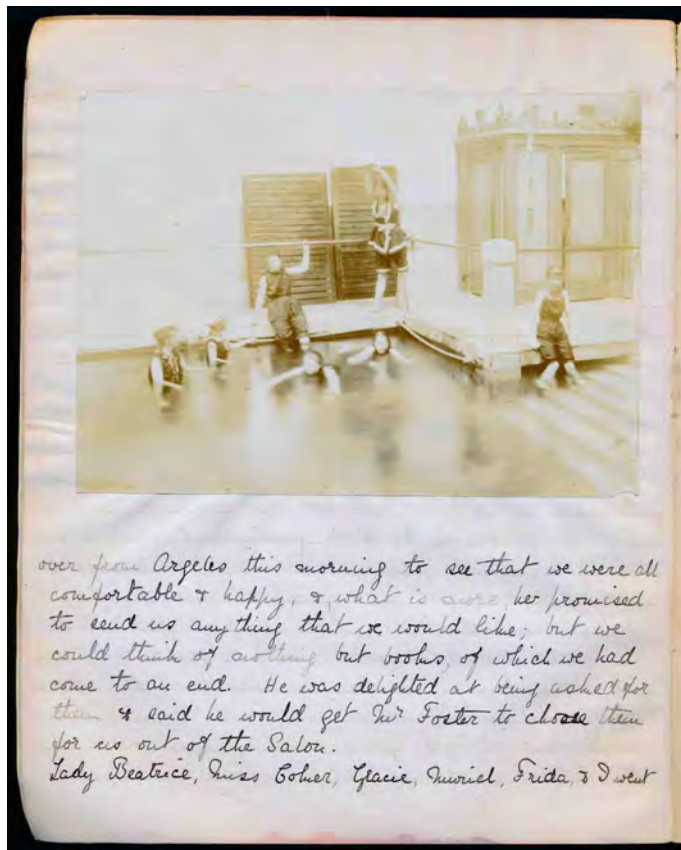 over from Argeles this morning to see that we were all
comfortable & happy, &, what is more, he promised
to send us any thing that we would like; but we
could think of nothing but books, of which we had
come to an end. He was delighted at being asked for
them & said he would get Mr Foster to chose them
for us out of the Salon.
Lady Beatrice, Miss Colner, Gracie, Muriel, Frida, & I went